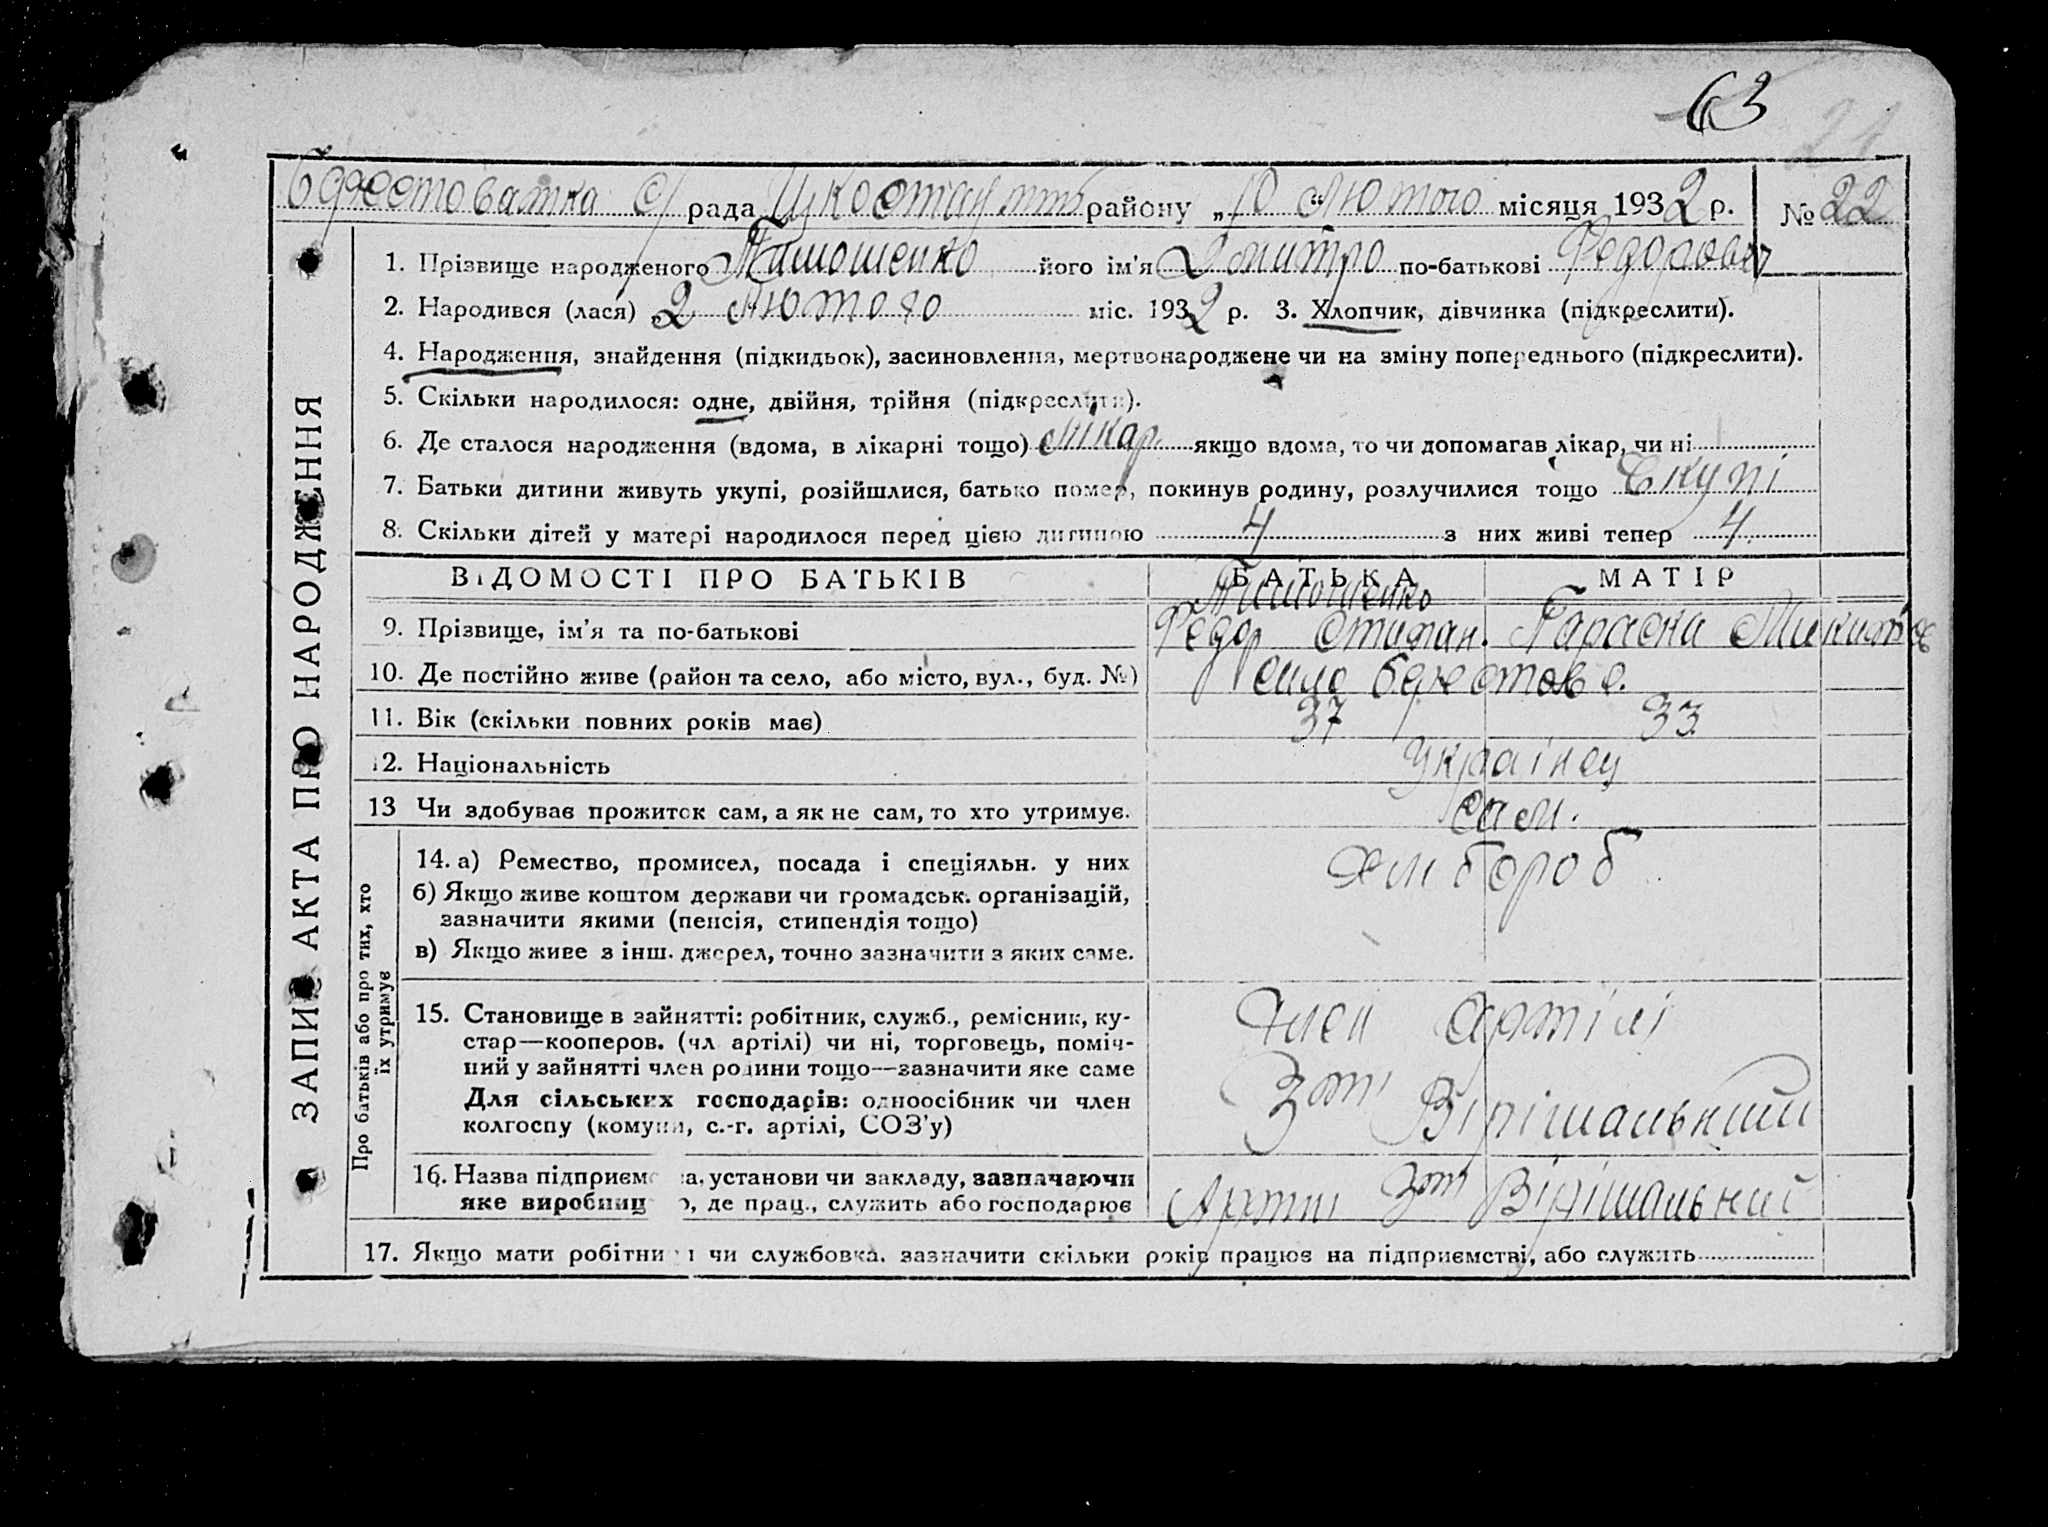 63
21
Берестоватка С/ рада район у „10" Лютого місяця 1932 р. № 22
ЗАПИС АКТА ПРО НАРОДЖЕННЯ
1. Прізвище народженого Тимошенко його ім'я Дмитро по-батькові Федорович
2. Народився (лася) 2 Лютого міс. 1932 р. 3. Хлопчик, дівчинка (підкреслити).
4. Народження, знайдення (підкидьок), засиновлення, мертвонароджене чи на зміну попереднього (підкреслити).
5. Скільки народилося: одне, двійня, трійня (підкреслити).
6. Де сталося народження (вдома, в лікарні тощо) лікар. якщо вдома, то чи допомагав лікар, чи ні
7. Батьки дитини живуть укупі, розійшлися, батько помер, покинув родину, розлучилися тощо Вкупі
8. Скільки дітей у матері народилося перед цією дитиною 4 з них живі тепер 4
ВІДОМОСТІ ПРО БАТЬКІВ БАТЬКА МАТІР
Тимошенко
9. Прізвище, ім'я та по-батькові Федор Степан. Параска Микит
10. Де постійно живе (район та село, або місто, вул., буд. №) село Берестов
11. Вік (скільки повних років має) 37 33
12. Національність Українец
13 Чи здобуває прожиток сам, а як не сам, то хто утримує. сам.
Про батьків або про тих, хто
їх утримує
14. а) Ремество, промисел, посада і спеціяльн. у них хлібороб
б) Якщо живе коштом держави чи громадськ. організацій,
зазначити якими (пенсія, стипендія тощо)
в) Якщо живе з інш. джерел, точно зазначити з яких саме.
15. Становище в зайнятті: робітник, служб., ремісник, ку- Член артілі
стар—кооперов. (чл артілі) чи ні, торговець, поміч-
ний у зайнятті член родини тощо—зазначити яке саме
Для сільських господарів: одноосібник чи член
колгоспу (комуни, с.-г. артілі, СОЗ'у) 3й Вірішальний
16. Назва підприємства, установи чи закладу, зазначаючи
яке виробництво, де прац., служить або господарює Артіл 3й Вірішальний
17. Якщо мати робітниця чи службовка, зазначити скільки років працює на підприємстві, або служить